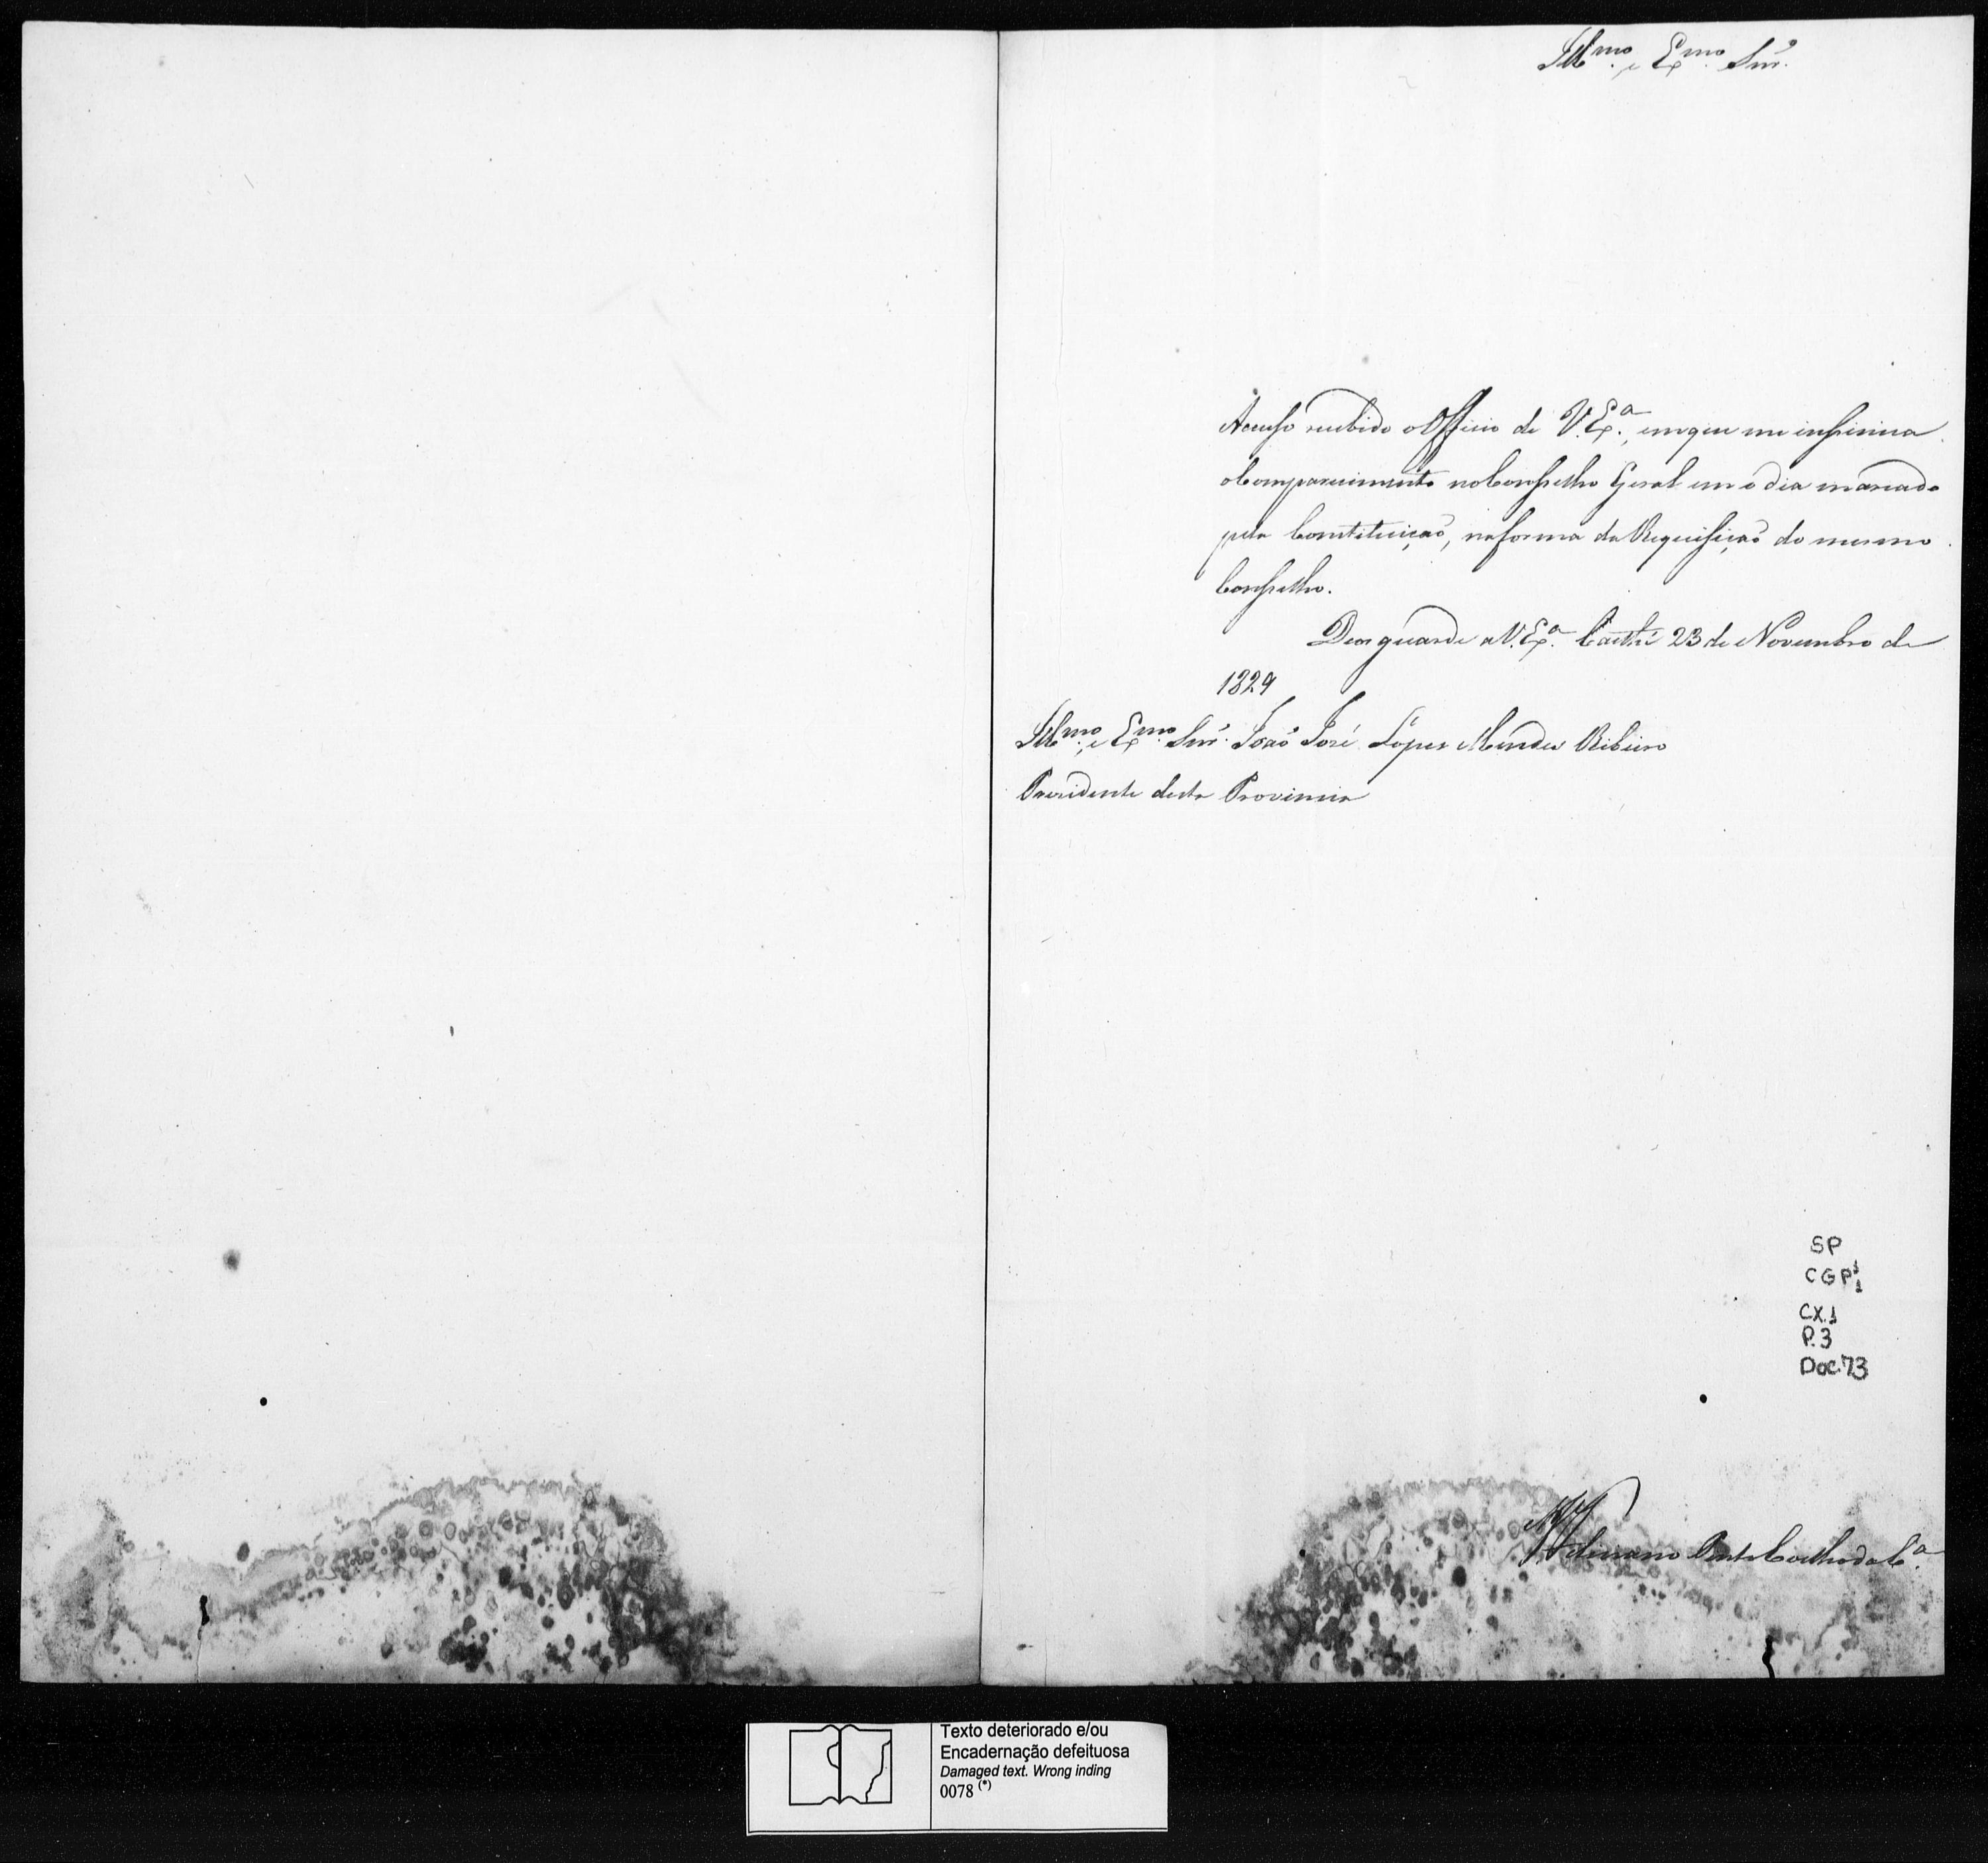 Illmo. e Exmo. Snr.
Accuso recebido o Officio de V. Exa., em que me insinua
o Comparecimento no Conselho Geral em o dia marcado
pela Constituição, na forma da Requisição do mesmo
Conselho.
Deos guarde a V. Exa. Caethé 23 de Novembro de
1829
Illmo. e Exmo. Snr. João José Lopes Mendes Ribeiro
Prezidente desta Provincia
SP
CGP1 1
CX.1
P.3
Doc.73
Feliciano Pinto Coelho da Ca.
Texto deteriorado e/ou
Encadernação defeituosa
Damaged text. Wrong inding
0078 (*)